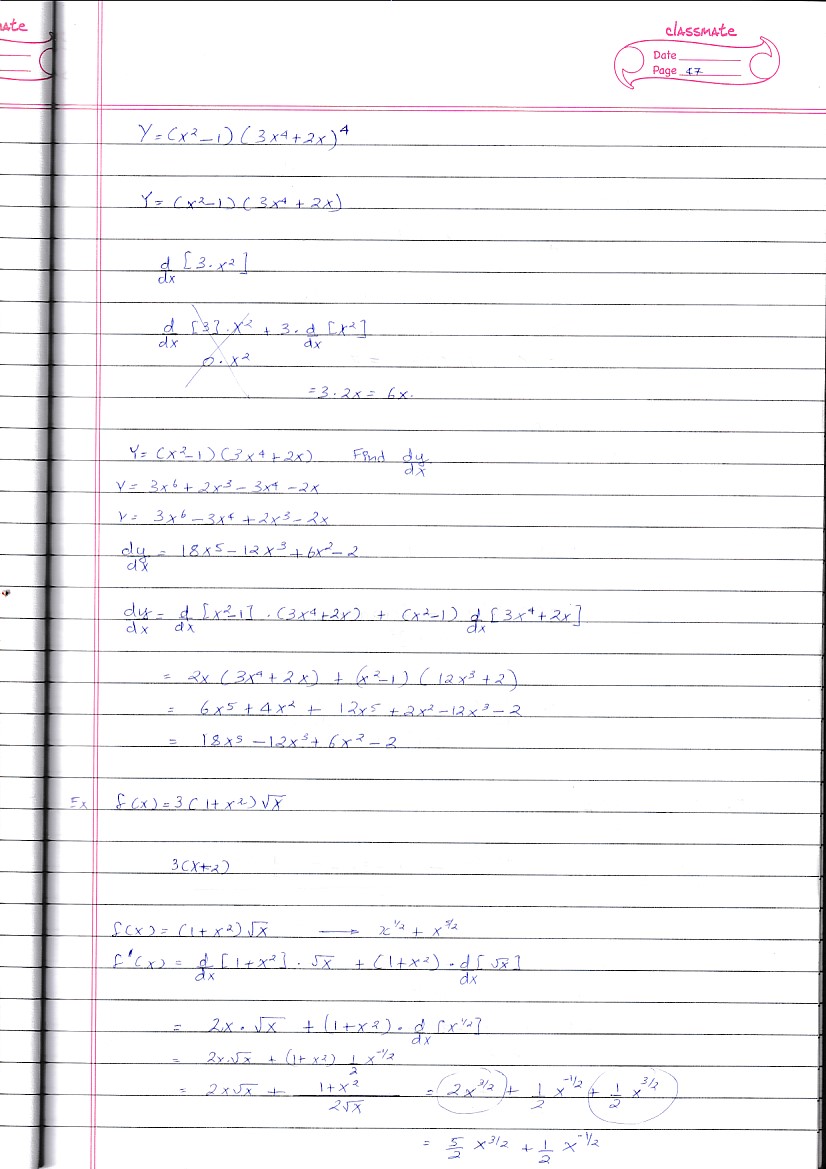 mate
classmate
Date
Page 47
Y = (x² – 1) (3x⁴ + 2x)⁴
Y = (x² – 1) (3x⁴ + 2x)
d/dx [3 · x²]
d/dx [3] · x² + 3 · d/dx [x²]
0 · x²
= 3 · 2x = 6x.
Y = (x² – 1) (3x⁴ + 2x) Find dy/dx
Y = 3x⁶ + 2x³ – 3x⁴ – 2x
Y = 3x⁶ – 3x⁴ + 2x³ – 2x
dy/dx = 18x⁵ – 12x³ + 6x² – 2
dy/dx = d/dx [x² – 1] · (3x⁴ + 2x) + (x² – 1) d/dx [3x⁴ + 2x]
= 2x (3x⁴ + 2x) + (x² – 1) (12x³ + 2)
= 6x⁵ + 4x² + 12x⁵ + 2x² – 12x³ – 2
= 18x⁵ – 12x³ + 6x² – 2
Ex f(x) = 3(1 + x²) √x
3(x+2)
f(x) = (1 + x²) √x → x^1/2 + x^5/2
f'(x) = d/dx [1 + x²] · √x + (1 + x²) · d/dx [√x]
= 2x · √x + (1 + x²) · d/dx [x^1/2]
= 2x·√x + (1 + x²) 1/2 x^-1/2
= 2x√x + (1 + x²)/(2√x) = 2x^3/2 + 1/2 x^-1/2 + 1/2 x^3/2
= 5/2 x^3/2 + 1/2 x^-1/2